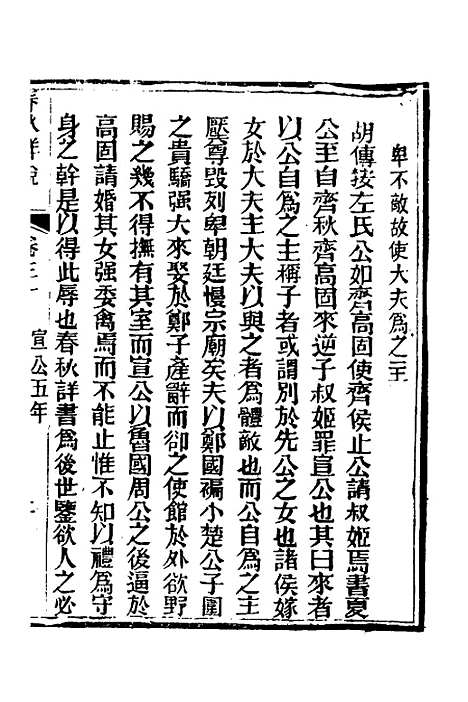 卑不敵故使大夫為之主
胡傳按左氏公如齊高固使齊侯止公請叔姬焉書夏
公至自齊秋齊高固來逆子叔姬罪宣公也其曰來者
以公自為之主稱子者或謂別於先公之女也諸侯嫁
女於大夫主大夫以與之者為體敵也而公自為之主
壓尊毀列卑朝廷慢宗廟矣夫以鄭國褊小楚公子圍
之貴驕强大來娶於鄭子產辭而卻之使館於外欲野
賜之幾不得撫有其室而宣公以魯國周公之後逼於
高固請婚其女强委禽焉而不能止惟不知以禮為守
身之幹是以得此辱也春秋詳書為後世鑒欲人之必
春秋詳說
卷三十
宣公五年